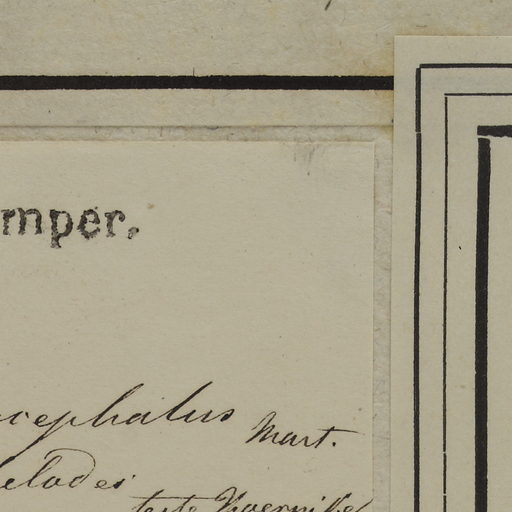 mper.
cephalus Mart.
elodes
teste Koernike